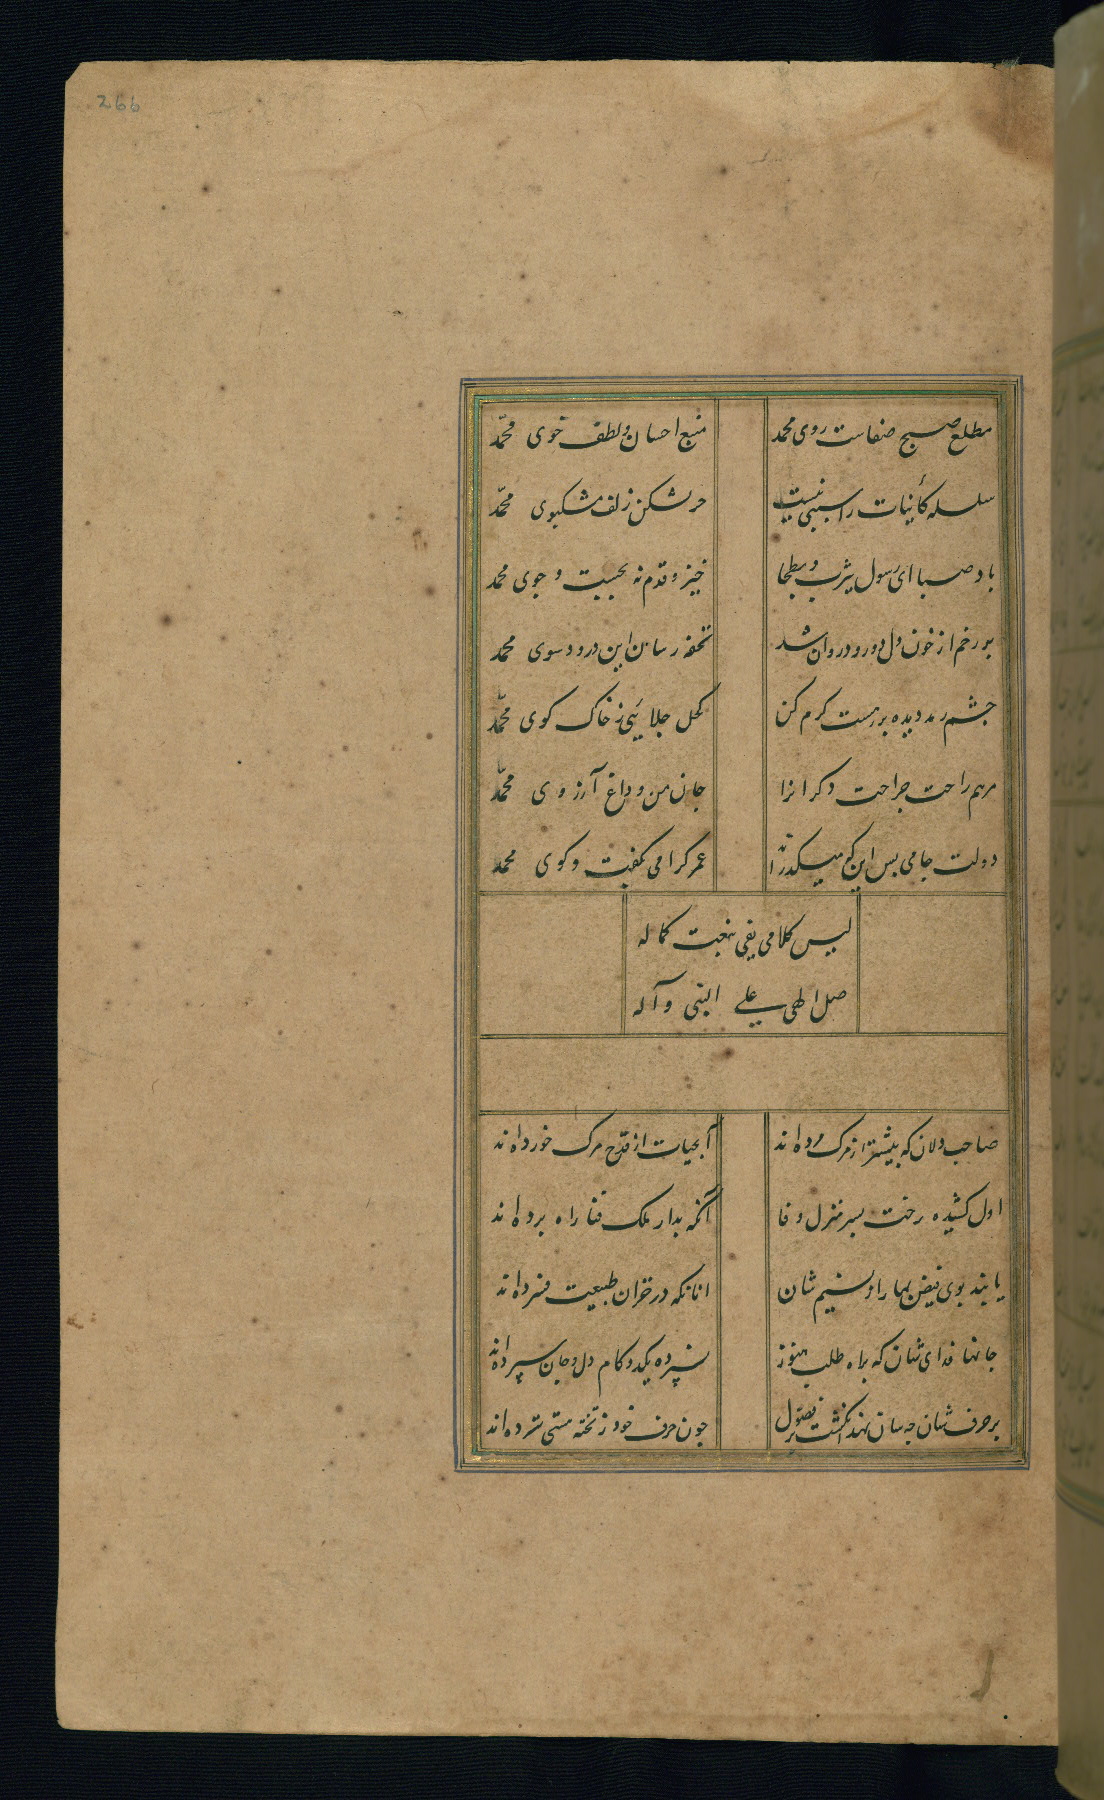 266
مطلع صبح صفاست روی محمد منبع احسان و لطف خوی محمّد
سلسلهٔ کأینات را سببی نیست جز شکن زلف مشکبوی محمّد
باد صبا ای رسول یثرب و بطحا خیز و قدم نه بجست و جوی محمد
بر رخم از خون دل دو رود روان شد تحفه رسان این درود سوی محمد
چشم رمد دیده بر رهست کرم کن کحل جلائیی ز خاک کوی محمّد
مرهم راحت جراحت دکرانرا جان من و داغ آرزوی محمّد
دولت جامی بس این که میکذراند عمر کرامی بکفت وکوی محمد
لیس کلامی یفی بنعت کماله
صل الهی علی النبی وآله
صاحب دلان که پیشتر از مرک مرده اند آبحیات از قدح مرک خورده اند
اول کشیده رخت بسر منزل وفا آنکه بدار ملک فنا راه برده اند
یابند بوی فیض بهار از نسیم شان انانکه در خزان طبیعت فسرده اند
جانها فدای شان که براه طلب هنوز نسپرده یکدو کام دل و جان سپرده اند
بر حرف شان چه سان نهد انکشت بوالفضول چون حرف خود ز تخته هستی سترده اند